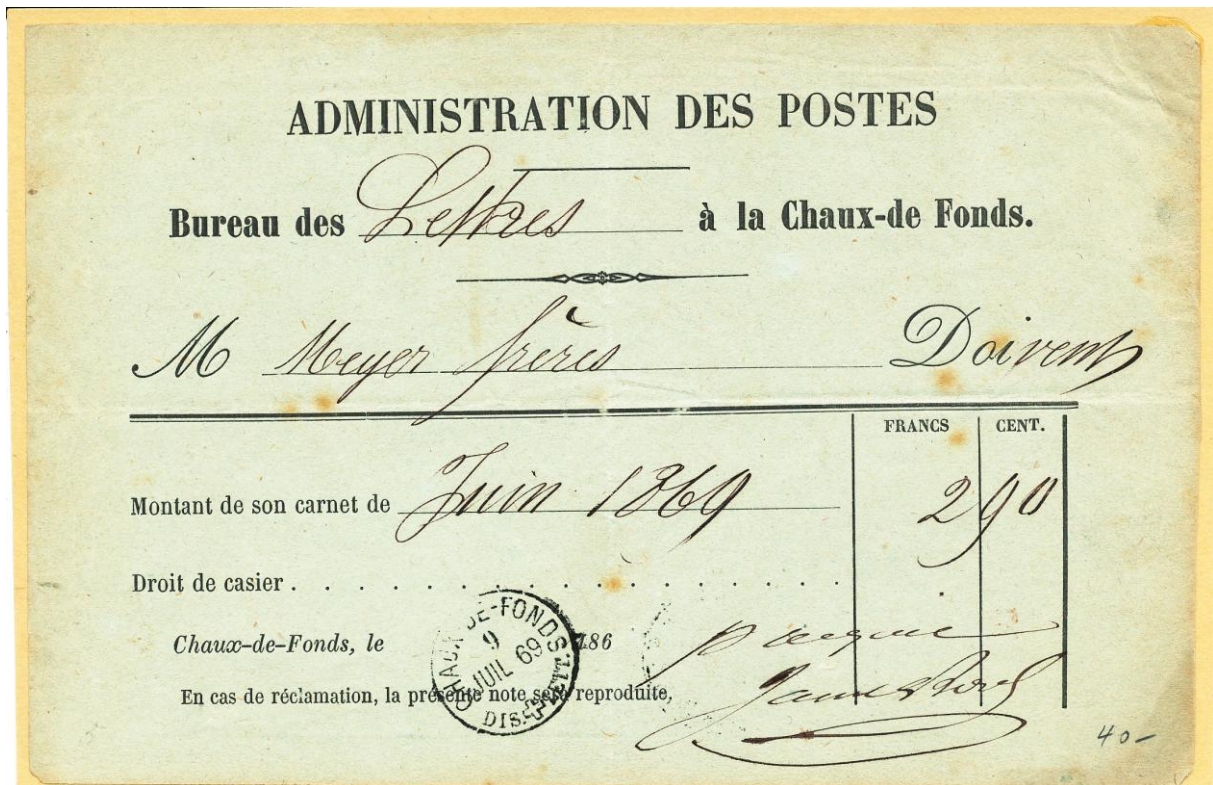 ADMINISTRATION DES POSTES
Bureau des Lettres à la Chaux-de Fonds.
M Meyer frères Doivent
FRANCS CENT.
Montant de son carnet de Juin 1869 2 90
Droit de casier . . . . . . . . . . . . . . . . . .
Chaux-de-Fonds, le 186
CHAUX-DE-FONDS
9
JUIL 69
DIST. LETT.
En cas de réclamation, la présente note sera reproduite,
p acquit
40-